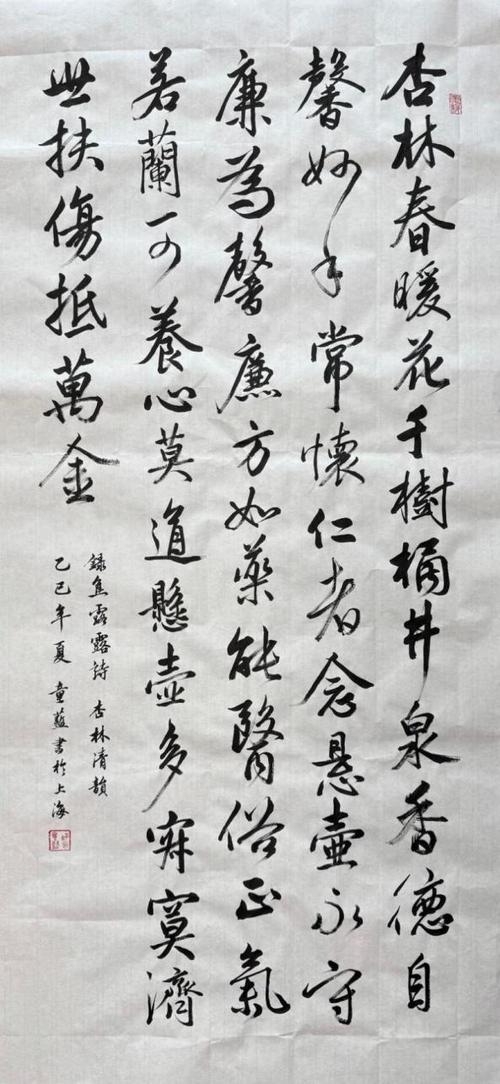 杏林春暖花千樹橘井泉香德自
馨妙手常懷仁者念悬壺永守
廉為馨廉方如藥能醫俗正氣
若蘭可養心莫道懸壺多寂寞濟
世扶傷抵萬金
錄焦露露詩 杏林清韻
乙巳年夏 童藍書於上海